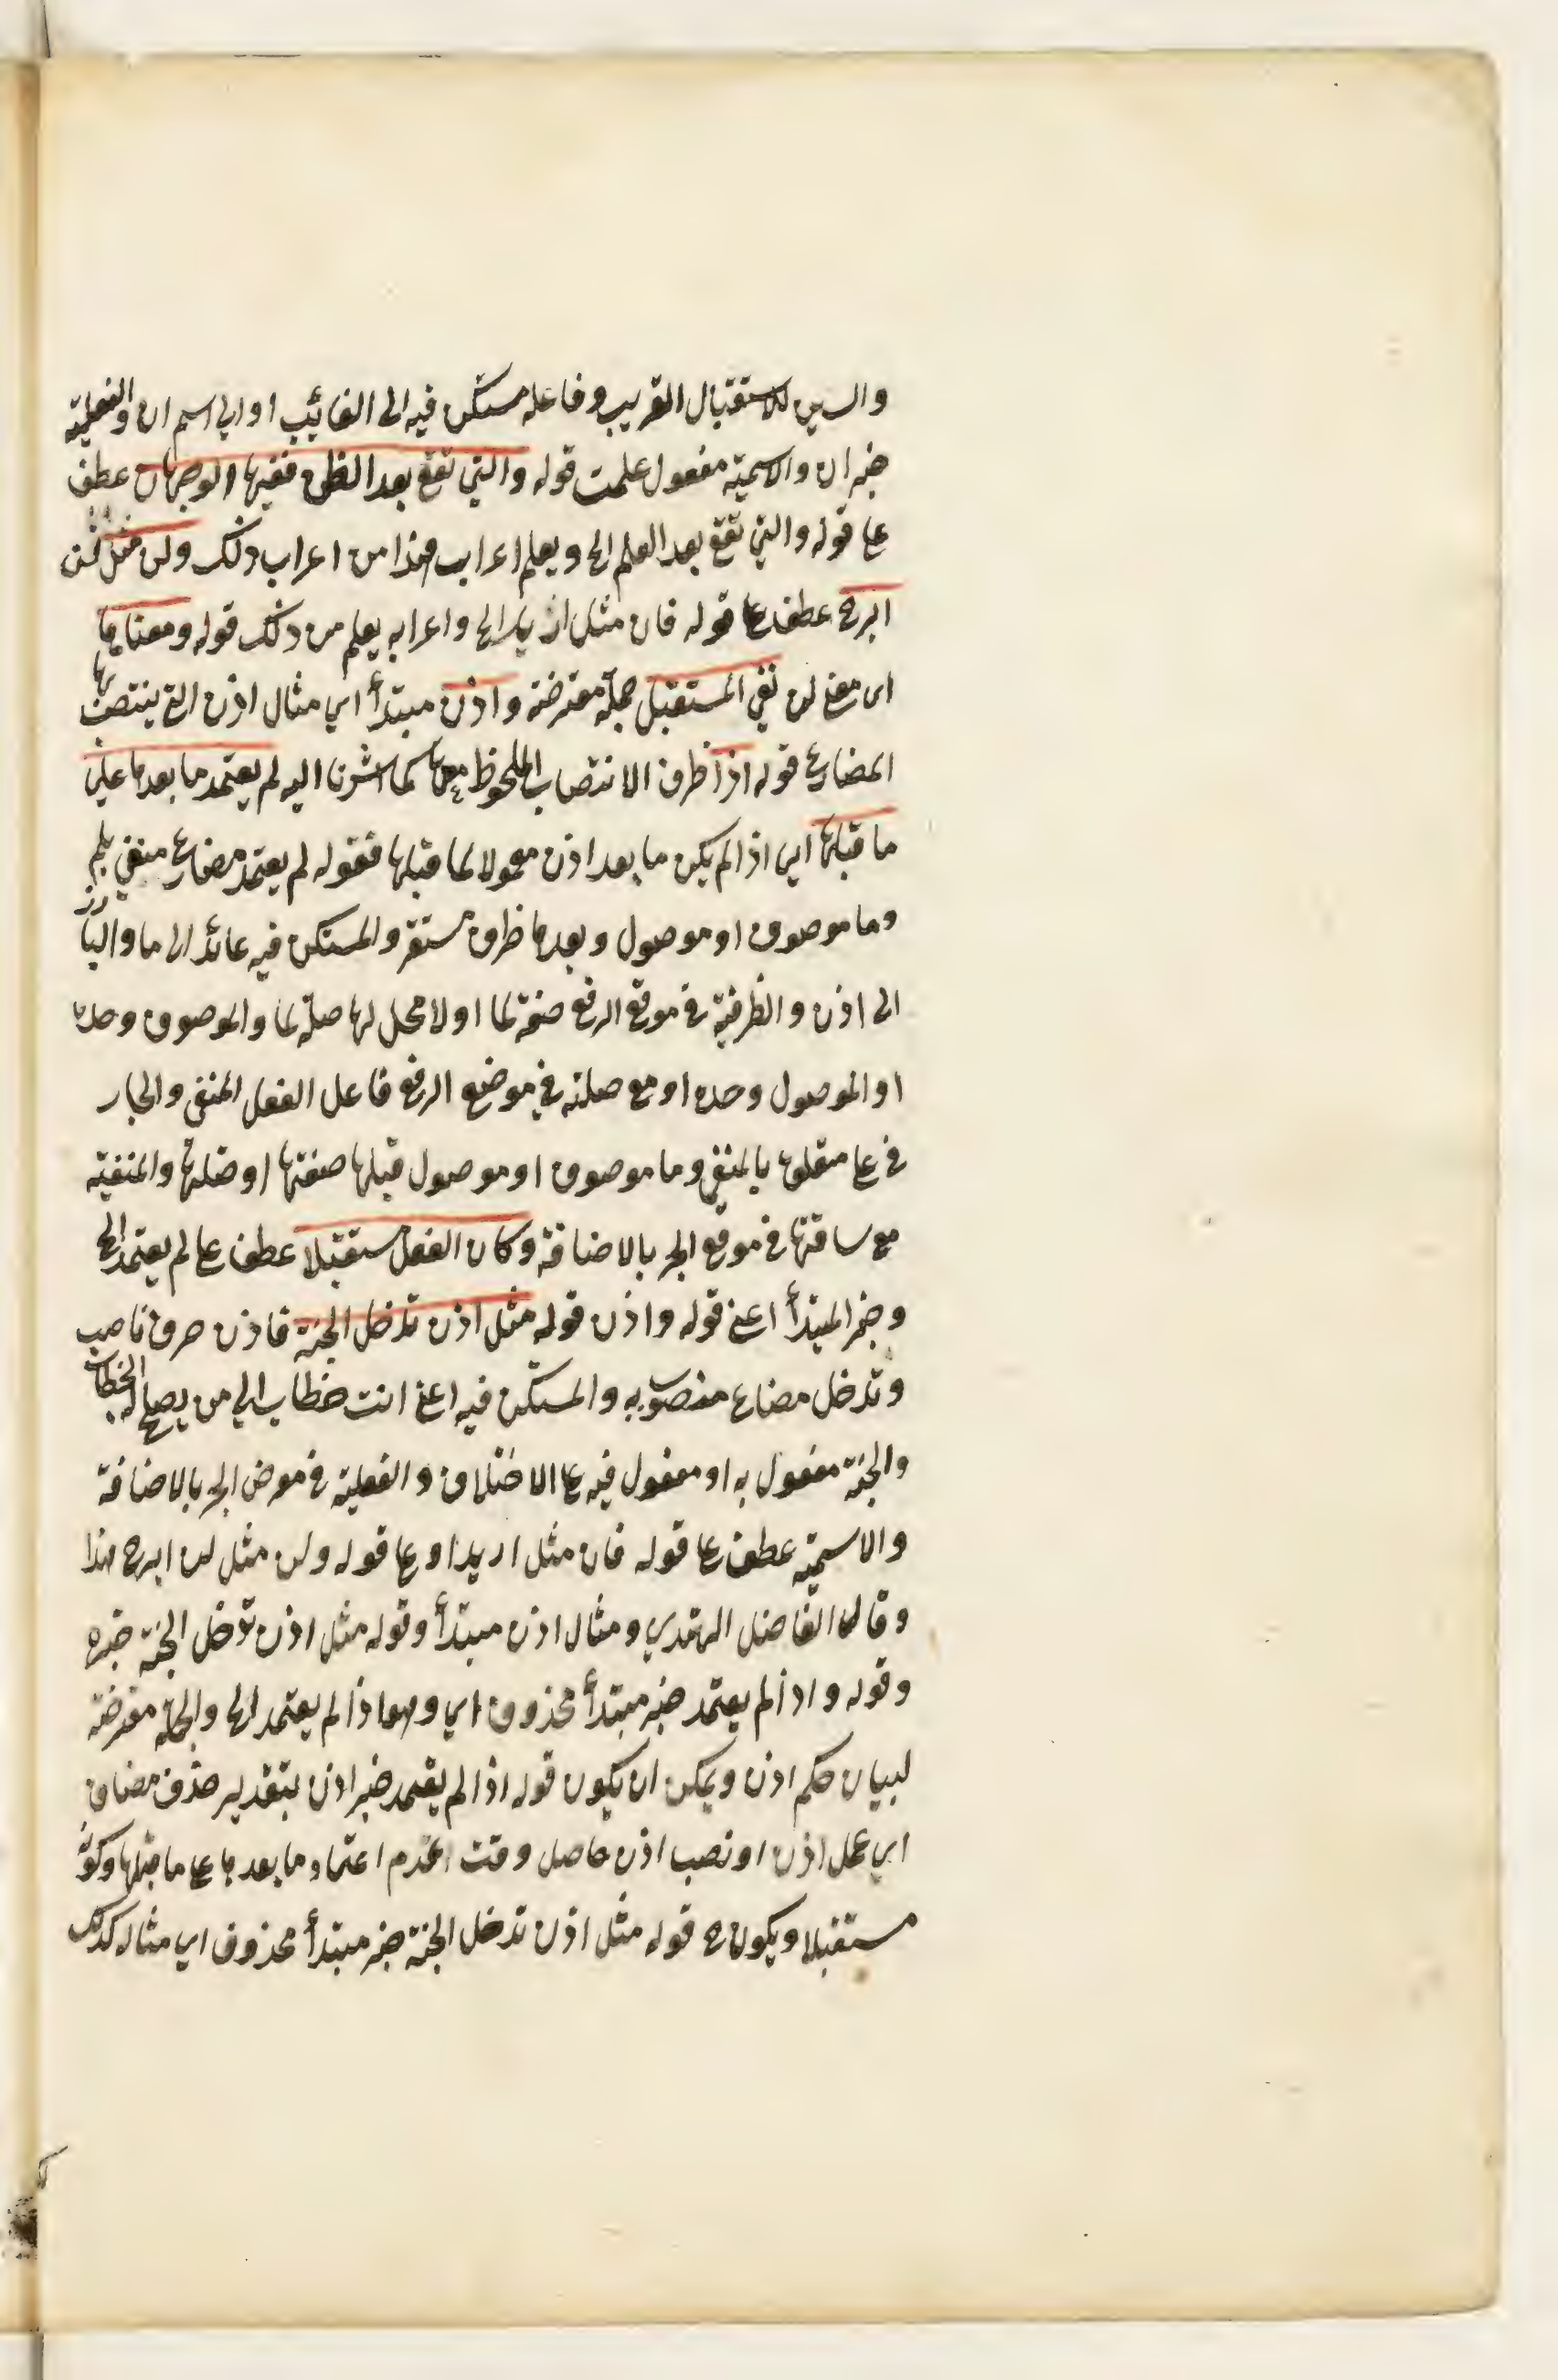 والسين للاستقبال القريب وفاعله مستكن فيه الى الغائب او الى اسم ان والفعلية
خبر ان والاسمية مفعول علمت قوله والتي تقع بعد الظن ففيها الوجهان عطف
على قوله والتي تقع بعد العلم الخ ويعلم اعراب هذا من اعراب ذلك ولن مثل لن
ابرح عطف على قوله فان مثل اريد الخ واعرابه يعلم من ذلك قوله ومعناها
اى معنى لن نفي المستقبل جملة معترضة واذن مبتدأ اي مثال اذن التي ينتصب بها
المضارع قوله اذا ظرف الانتصاب الملحوظ معها كما اشرنا اليه لم يعتمد ما بعدها على
ما قبلها اي اذا لم يكن ما بعد اذن معمولا لما قبلها فقوله لم يعتمد مضارع منفي بلم
وما موصوف او موصول وبعدها ظرف مستقر والمستكن فيه عائد الى ما والبارز
الى اذن والظرفية في موقع الرفع صفة لما او لا محل لها صلة لما والموصوف وحده
او الموصول وحده او مع صلته في موضع الرفع فاعل الفعل المنفي والجار
في على متعلق بالمنفي وما موصوف او موصول قبلها صفتها او صلتها والمنفية
مع ساقتها في موقع الجر بالاضافة وكان الفعل مستقبلا عطف على لم يعتمد الخ
وخبر المبتدأ اعني قوله واذن قوله مثل اذن تدخل الجنة فاذن حرف ناصب
وتدخل مضارع منصوب به والمستكن فيه اعني انت خطاب الي من يصلح له الخطاب
والجنة مفعول به او مفعول فيه على الاختلاف والفعلية في موضع الجر بالاضافة
والاسمية عطف على قوله فان مثل اريد او على قوله ولن مثل لن ابرح هذا
وقال الفاضل الهندي ومثال اذن مبتدأ وقوله مثل اذن تدخل الجنة خبره
وقوله واذا لم يعتمد خبر مبتدأ محذوف اي وهو اذا لم يعتمد الخ والجملة معترضة
لبيان حكم اذن ويمكن ان يكون قوله اذا لم يعتمد خبر اذن بتقدير حذف مضاف
اي عمل اذن او نصب اذن حاصل وقت عدم اعتماد ما بعدها على ما قبلها وكونه
مستقبلا ويكون ح قوله مثل اذن تدخل الجنة خبر مبتدأ محذوف اي مثاله كذلك